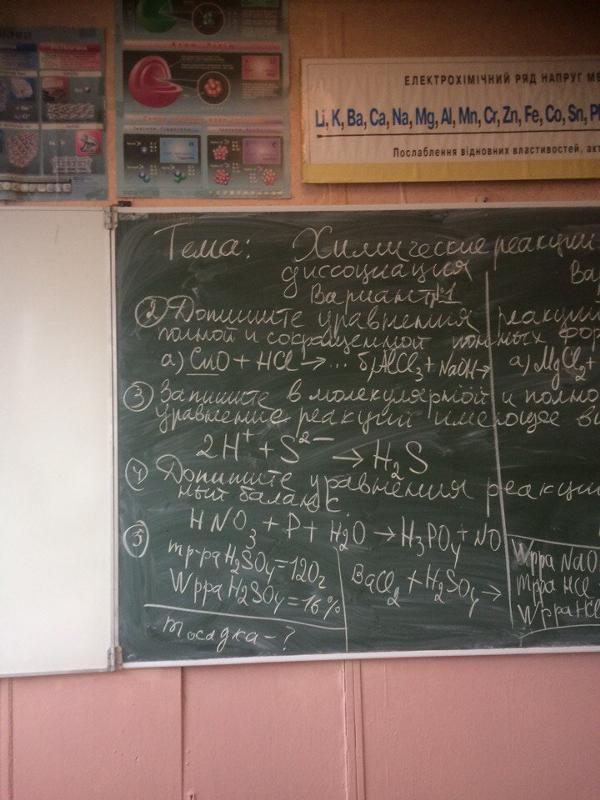 ЕЛЕКТРОХІМІЧНИЙ РЯД НАПРУГ МЕ
Li, K, Ba, Ca, Na, Mg, Al, Mn, Cr, Zn, Fe, Co, Sn, Pb
Послаблення відновних властивостей, акт
Тема: Химические реакции
диссоциация
Вариант №1
Ва
② Допишите уравнения реакций
полной и сокращенной ионных фор
а) CuO + HCl → ... б) AlCl₃ + NaOH →
а) MgCl₂ +
③ Запишите в молекулярной и полно
уравнение реакций имеющее ви
2H⁺ + S²⁻ → H₂S
④ Допишите уравнения реакции
ный баланс.
HNO₃ + P + H₂O → H₃PO₄ + NO
⑤
mр-ра H₂SO₄ = 120г
Wрра H₂SO₄ = 16%
mосадка - ?
BaCl₂ + H₂SO₄ →
Wрра NaO
mрра HCl
Wрра HCl